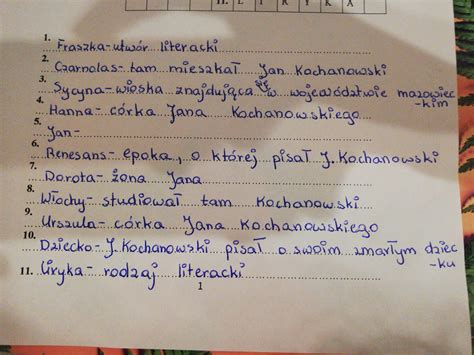 11. L I R Y K A
1. Fraszka-utwór literacki
2. Czarnolas-tam mieszkał Jan Kochanowski
3. Sycyna-wioska znajdująca w województwie mazowiec
-kim
4. Hanna-córka Jana Kochanowskiego
5. Jan-
6. Renesans-epoka, o której pisał J. Kochanowski
7. Dorota-żona Jana
8. Włochy-studiował tam Kochanowski
9. Urszula-córka Jana Kochanowskiego
10. Dziecko-J. Kochanowski pisał o swoim zmarłym dziec
-ku
11. Liryka-rodzaj literacki
1